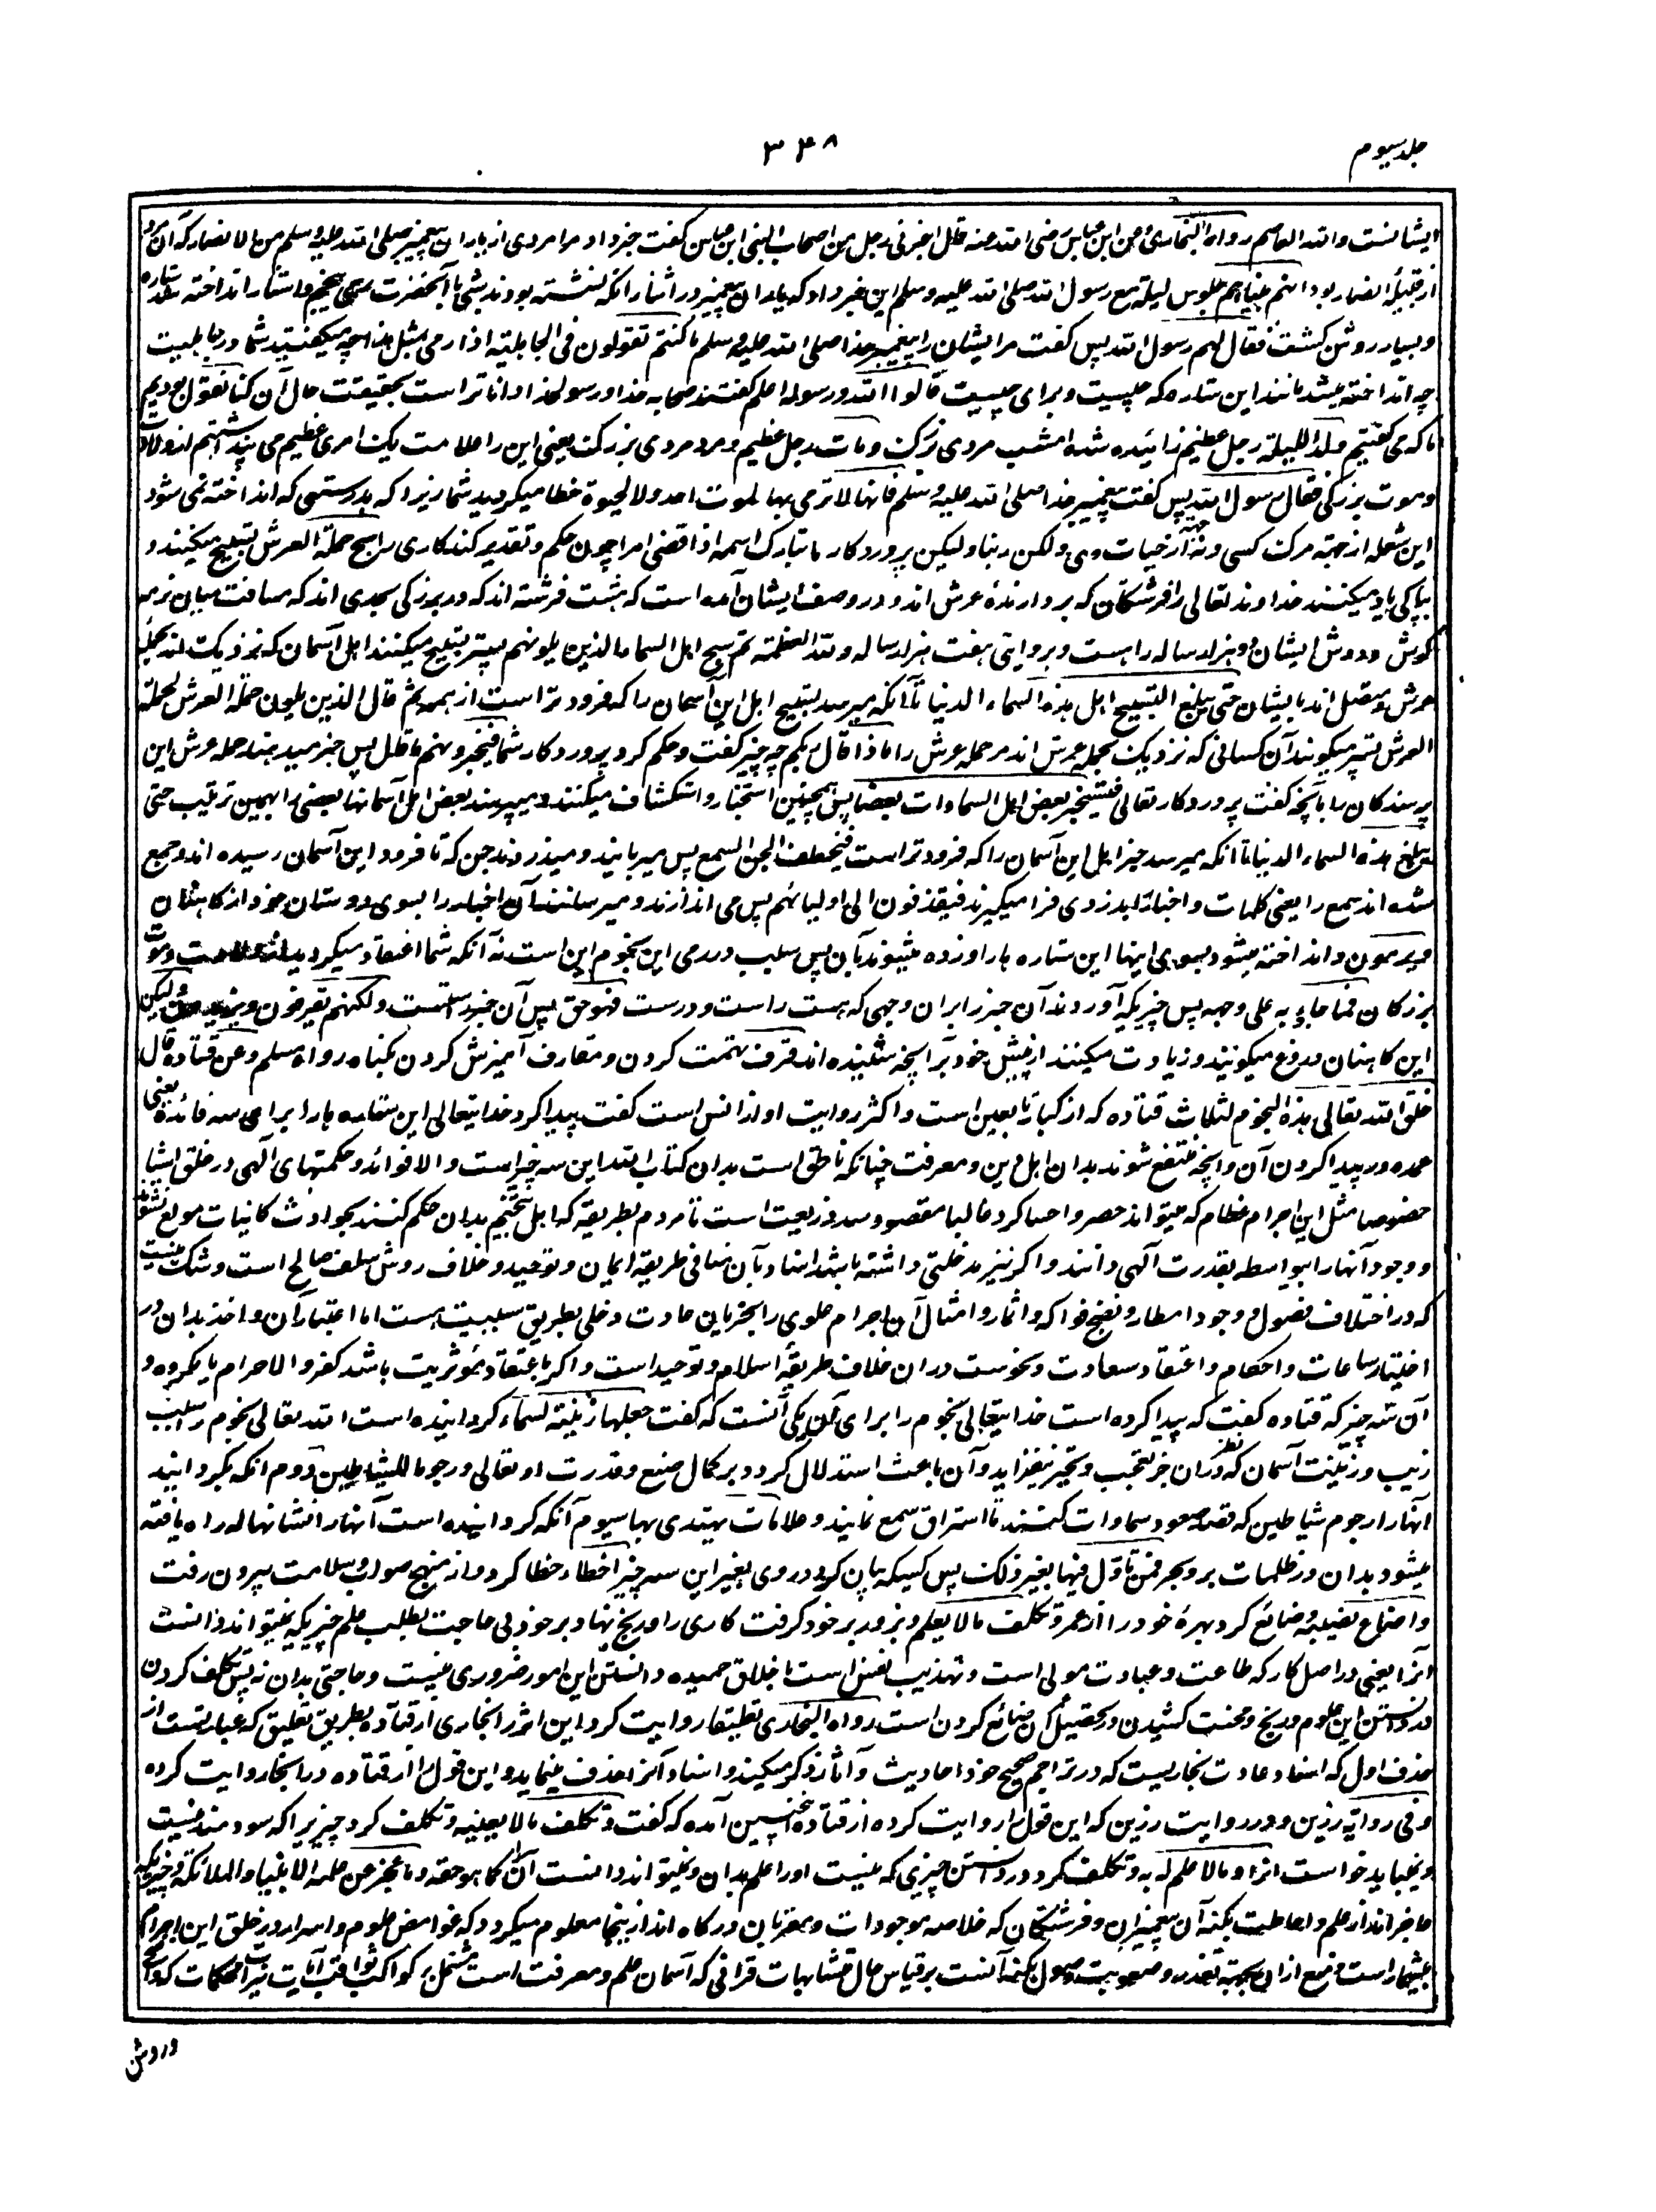 جلد سیوم
۳۴۸
ایشانست والله العاصم رواه البخاری وعن ابن عباس رضی الله عنه قال اخبرنی رجل من اصحاب النبی ابن عباس گفت خبر داد مرا مردی از یاران پیغمبر صلی الله علیه وسلم من الانصار که آن مرد
از قبیلهٔ انصار بود انهم بیناهم جلوس لیلة مع رسول الله صلی الله علیه وسلم این خبر داد که یاران پیغمبر در اثنار انکه نشسته بودند شبی با آنحضرت رمی بنجم واستنار انداخته شد ستاره
و بسیار روشن گشت فقال لهم رسول الله پس گفت مرایشان را پیغمبر خدا صلی الله علیه وسلم ما کنتم تقولون فی الجاهلیة اذا رمی بمثل هذا چه میگفتید شما در جاهلیت
چون انداخته میشد مانند این ستاره که چیست و برای چیست قالوا الله ورسوله اعلم گفتند صحابه خدا و رسول خدا داناتر است بحقیقت حال آن کنا نقول بودیم
ما که می گفتیم ولد اللیلة رجل عظیم زائیده شده امشب مردی بزرگ ومات رجل عظیم و مرد مردی بزرگ یعنی این را علامت یک امری عظیم می پنداشتیم از ولادت
و موت بزرگی فقال رسول الله پس گفت پیغمبر خدا صلی الله علیه وسلم فانها لا ترمی بها لموت احد ولا لحیوة خطا میکردید شما زیرا که بدرستی که انداخته نمی شود
این شعله از جهة مرگ کسی و نه از جهة حیات وی ولکن ربنا ولیکن پروردگار ما تبارک اسمه اذا قضی امرا چون حکم و تقدیر کند کاری را سبح حملة العرش تسبیح میکنند و
بپاکی یاد میکنند خداوند تعالی را فرشتگان که بردارندهٔ عرش اند و در وصف ایشان آمده است که هشت فرشته اند که در بزرگی بحدی اند که مسافت میان نرمه
گوش و دوش ایشان دو هزار ساله راهست و بروایتی هفت هزار ساله ولله العظمة ثم سبح اهل السماء الذین یلونهم پستر تسبیح میکنند اهل آسمان که نزدیک اند بحملهٔ
عرش و متصل اند بایشان حتی یبلغ التسبیح اهل هذه السماء الدنیا تا آنکه میرسد تسبیح اهل این آسمان را که فرودتر است از همه ثم قال الذین یلون حملة العرش لحملة
العرش پستر میگویند آن کسانی که نزدیک بحملهٔ عرش اند مر حملهٔ عرش را ماذا قال ربکم چه چیز گفت و حکم کرد پروردگار شما فیخبرونهم ما قال پس خبر میدهند حملهٔ عرش این
پرسندگان را بآنچه گفت پروردگار تعالی فیستخبر بعض اهل السماوات بعضا پس همچنین استخبار و استکشاف میکنند و میپرسند بعض اهل آسمانها بعضی را بهمین ترتیب حتی
یبلغ هذه السماء الدنیا تا آنکه میرسد خبر اهل این آسمان را که فرودتر است فیخطف الجن السمع پس میربایند و میدزدند جن که تا فرود این آسمان رسیده اند و جمع
شده اند سمع را یعنی کلمات و اخبار را بدزدی فرا میگیرند فیقذفون الی اولیائهم پس می اندازند و میرسانند آن اخبار را بسوی دوستان خود از کاهنان
ویرمون و انداخته میشود بسوی اینها این ستاره ها و زده میشوند بآن پس سبب در رمی این نجوم این است نه آنکه شما اعتقاد میکردید از ولادت و موت
بزرگان فما جاءوا به علی وجهه پس چیزیکه آوردند آن خبر را بران وجهی که هست راست و درست فهو حق پس آن خبر راستست ولکنهم یقرفون ویزیدون ولیکن
این کاهنان دروغ میگویند و زیادت میکنند از پیش خود بر آنچه شنیده اند قرف تهمت کردن و مقارف آمیزش کردن بگناه رواه مسلم وعن قتاده قال
خلق الله تعالی هذه النجوم لثلاث قتاده که از کبار تابعین است و اکثر روایت او از انس است گفت پیدا کرد خدایتعالی این ستاره ها را برای سه فائده یعنی
عمده در پیدا کردن آن و آنچه منتفع شوند بدان اهل دین و معرفت چنانکه ناطق است بدان کتاب الله این سه چیز است والا فوائد و حکمتهای آلهی در خلق اشیا
خصوصا مثل این اجرام عظام که میتواند حصر و احصا کرد غالبا مقصود سد ذریعت است تا مردم بطریقه که اهل تنجیم بدان حکم کنند بحوادث کائنات مولع نشوند
و وجود آنها را بواسطه بقدرت آلهی دانند و اگر نیز مدخلتی داشته باشد اسناد بآن منافی طریقهٔ ایمان و توحید و خلاف روش سلف صالح است و شک نیست
که در اختلاف فصول و وجود امطار و نضج فواکه و اثمار و امثال آن اجرام علوی را بجریان عادت دخلی بطریق سببیت هست اما اعتبار آن و اخذ بدان در
اختیار ساعات و احکام و اعتقاد سعادت و نحوست دران خلاف طریقهٔ اسلام و توحید است و اگر باعتقاد مؤثریت باشد کفر والا حرام یا مکروه و
آن سه چیز که قتاده گفت که پیدا کرده است خدایتعالی نجوم را برای آن یکی آنست که گفت جعلها زینة للسماء گردانیده است الله تعالی نجوم را سبب
زیب و زینت آسمان که نظر دران جز تعجب و تحیر نیفزاید و آن باعث استدلال گردد بر کمال صنع و قدرت او تعالی ورجوما للشیاطین دوم آنکه بگردانید
آنها را رجوم شیاطین که قصد صعود سماوات کنند تا استراق سمع نمایند وعلامات یهتدی بها سیوم آنکه گردانیده است آنها را نشانها که راه یافته
میشود بدان در ظلمات بر و بحر فمن تاول فیها بغیر ذلک پس کسیکه بیان کرد در وی بغیر این سه چیز اخطا خطا کرد و از منهج صواب و سلامت بیرون رفت
واضاع نصیبه و ضائع کرد بهرهٔ خود را از عمر وتکلف ما لا یعلم و بزور بر خود گرفت کاری را و رنج نهاد بر خود بی حاجت بطلب علم چیزیکه نمیتواند دانست
آنرا یعنی در اصل کار که طاعت و عبادت مولی است و تهذیب نفس است باخلاق حمیده دانستن این امور ضروری نیست و حاجتی بدان نه پس تکلف کردن
در دانستن این علوم و رنج و محنت کشیدن در تحصیل آن ضائع کردن است رواه البخاری تعلیقا روایت کرد این اثر را بخاری از قتاده بطریق تعلیق که عبارتست از
حذف اول که اسناد عادت بخاریست که در تراجم صحیح خود احادیث و آثار ذکر میکند و اسناد آنرا حذف مینماید و این قول را از قتاده در آنجا روایت کرده
وفی روایة رزین و در روایت رزین که این قول را روایت کرده از قتاده همچنین آمده که گفت وتکلف ما لا یعنیه و تکلف کرد چیزیرا که سودمند نیست
و نمیباید خواست آنرا وما لا علم له به و تکلف کرد در دانستن چیزی که نیست او را علم بدان و نمیتواند دانست آن را کما هو حقه وما عجز عن علمه الانبیاء والملائکة و چیزیکه
عاجز اند از علم و احاطت بکنه آن پیغمبران و فرشتگان که خلاصهٔ موجودات و مقربان درگاه اند ازینجا معلوم میگردد که غوامض علوم و اسرار در خلق این اجرام
بیشمار است و منع ازان بجهت تعذر و صعوبت وصول بکنه آنست بر قیاس حال متشابهات قرآنی که آسمان علم و معرفت است مشتمل بر کواکب ثواقب آیات بینات محکمات که واضح
و روشن